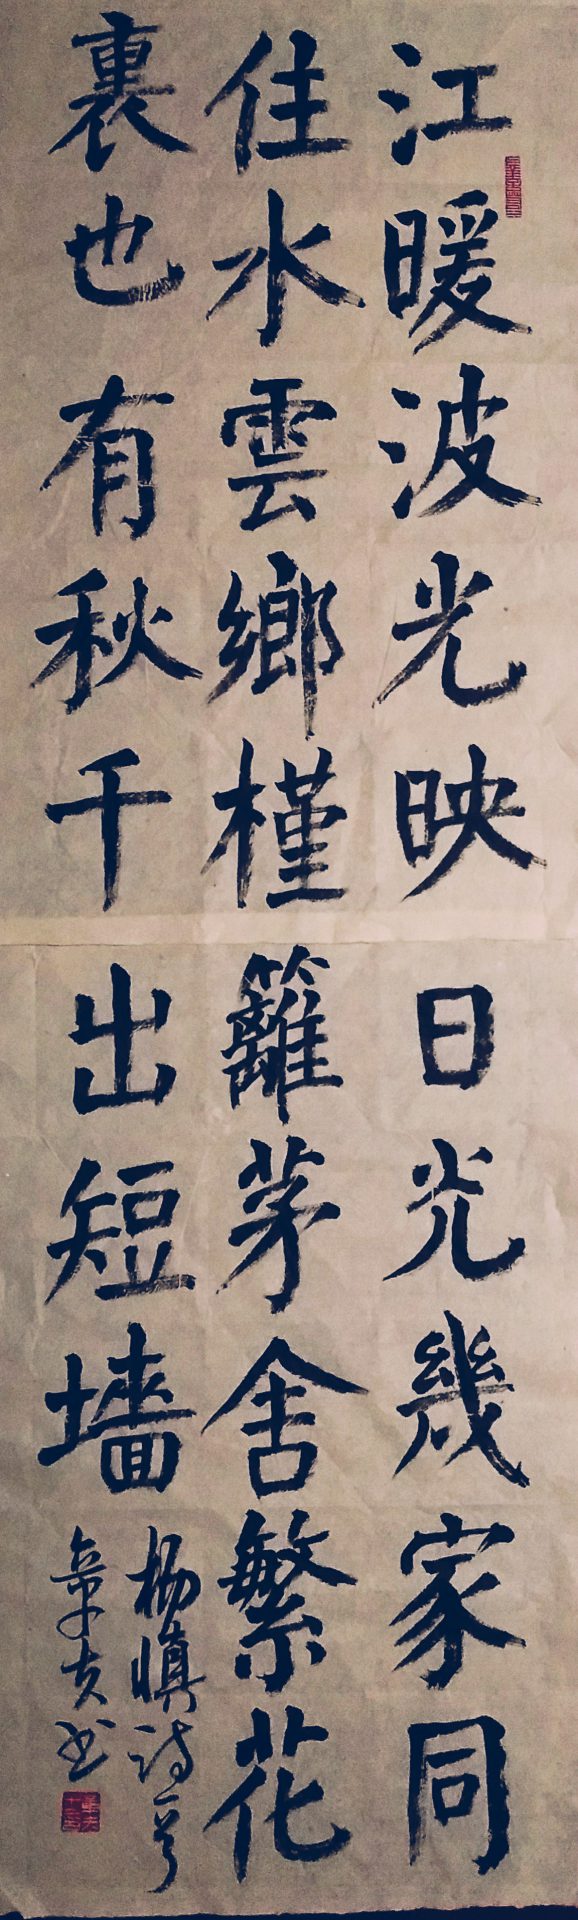 江暖波光映日光幾家同
住水雲鄉槿籬茅舍繁花
裏也有秋千出短墻
杨慎诗一首
章友书